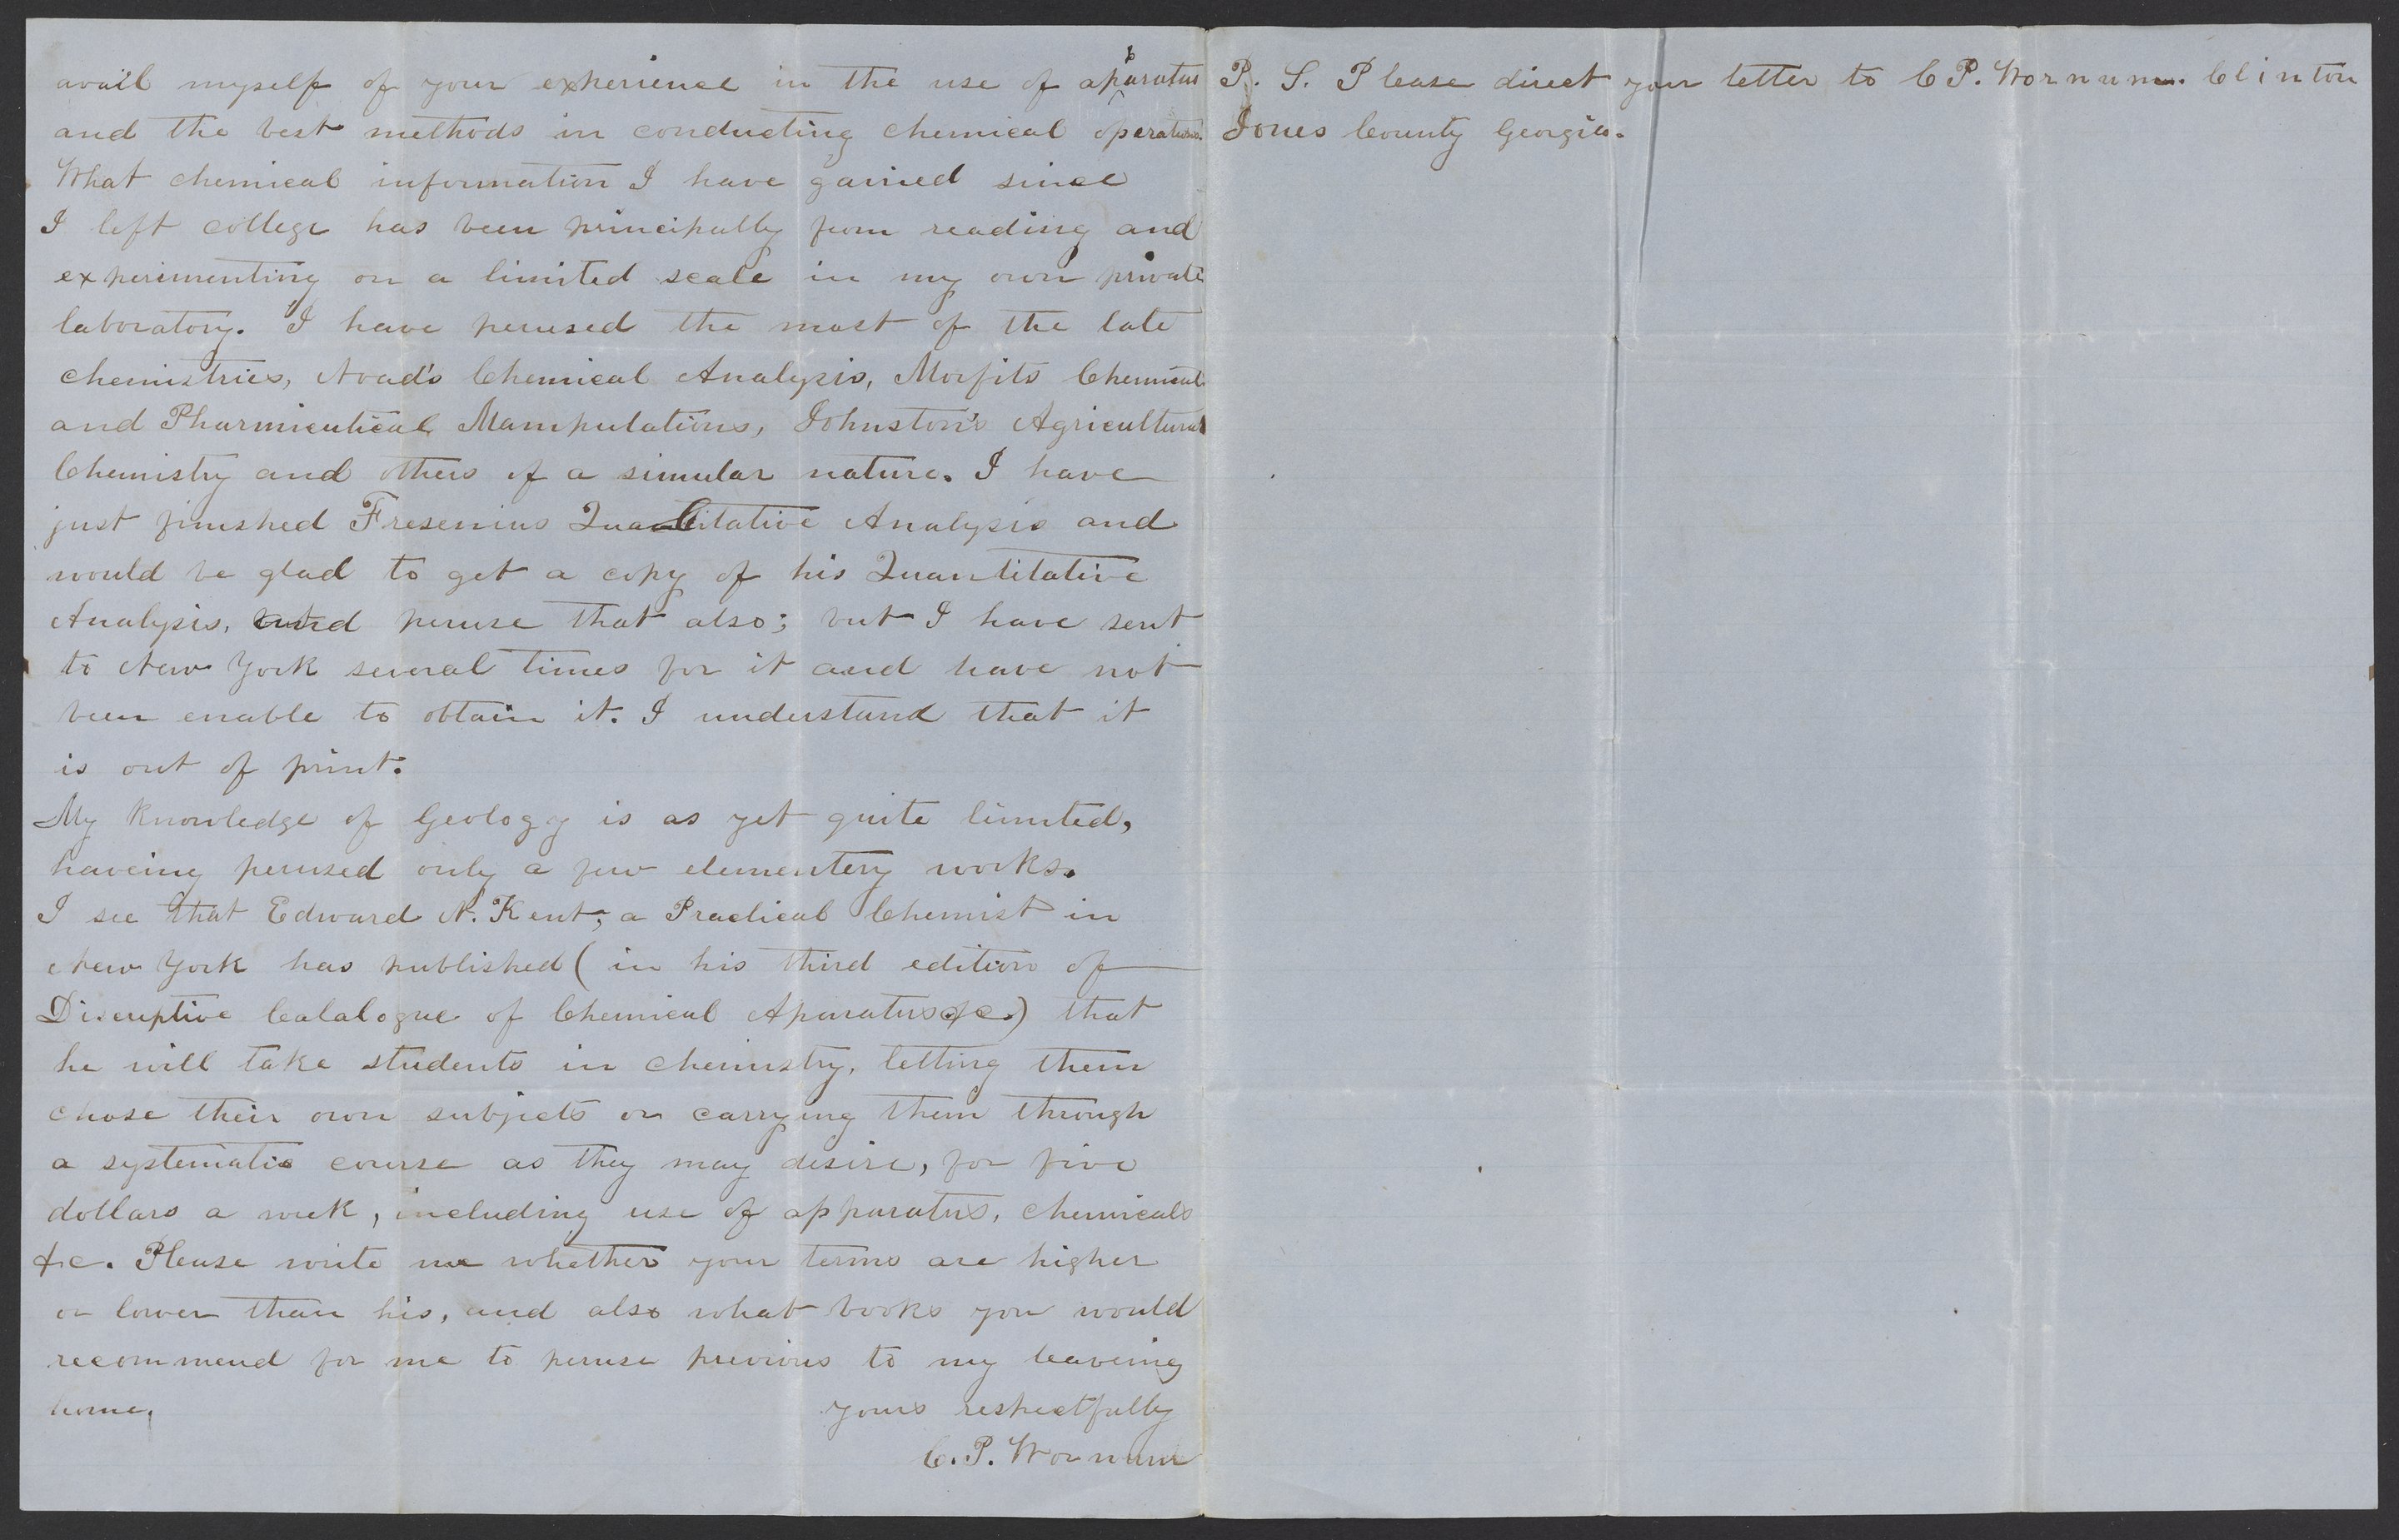 avail myself of your experience in the use of apparatus
and the best methods in conducting chemical operations.
What chemical information I have gained since
I left college has been principally from reading and
experimenting on a limited scale in my own private
laboratory. I have perused the most of the late
chemistries, Noad's Chemical Analysis, Morfits Chemical
and Pharmicutical Manipulations, Johnston's Agricultural
Chemistry and others of a simular nature. I have
just finished Fresenius Qualitative Analysis and
would be glad to get a copy of his Quantitative
Analysis, and peruse that also; but I have sent
to New York several times for it and have not
been enable to obtain it. I understand that it
is out of print.
My knowledge of Geology is as yet quite limited,
haveing perused only a few elementery works.
I see that Edward N. Kent, a Practical Chemist in
New York has published (in his third edition of
Discriptive Catalogue of Chemical Aparatus &c.) that
he will take students in chemistry, letting them
chose their own subjects or carrying them through
a systematic course as they may desire, for five
dollars a week, including use of apparatus, chemicals
&c. Please write me whether your terms are higher
or lower than his, and also what books you would
recommend for me to peruse previous to my leaveing
home.
yours respectfully
C. P. Wornum
P. S. Please direct your letter to C P. Wornum. Clinton
Jones County Georgia.